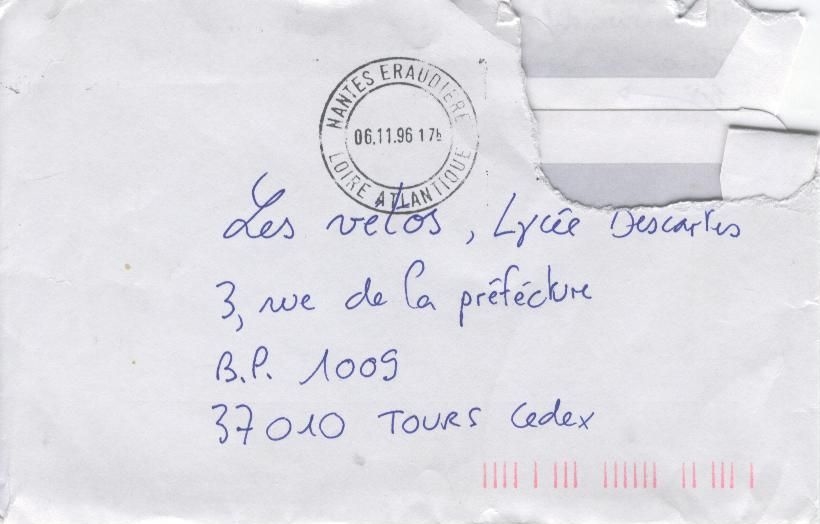 NANTES ERAUDIERE
06.11.96 17h
LOIRE ATLANTIQUE
Les vetos, Lycée Descartes
3, rue de la préfécture
B.P. 1009
37010 TOURS Cedex